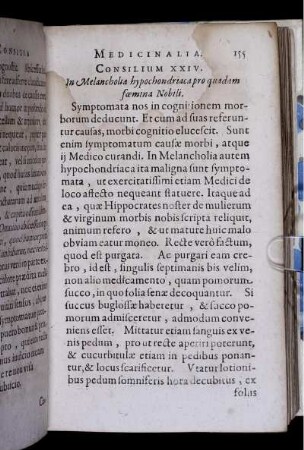 MEDICINALIA. 155
CONSILIUM XXIV.
In Melancholia hypochondriaca pro quadam
fœmina Nobili.
Symptomata nos in cognitionem mor-
borum deducunt. Et cum ad suas referun-
tur causas, morbi cognitio elucescit. Sunt
enim symptomatum causæ morbi, atque
ij Medico curandi. In Melancholia autem
hypochondriaca ita maligna sunt sympto-
mata, ut exercitatissimi etiam Medici de
loco affecto nequeant statuere. Itaque ad
ea, quæ Hippocrates noster de mulierum
& virginum morbis nobis scripta reliquit,
animum refero, & ut mature huic malo
obviam eatur moneo. Recte verò factum,
quod est purgata. Ac purgari eam cre-
bro, id est, singulis septimanis bis velim,
non alio medicamento, quam pomorum
succo, in quo folia senæ decoquantur. Si
succus buglossæ haberetur, & succo po-
morum admisceretur, admodum conve-
niens esset. Mittatur etiam sanguis ex ve-
nis pedum, prout recte aperiri poterunt,
& cucurbitulæ etiam in pedibus ponan-
tur, & locus scarificetur. Vtatur lotioni-
bus pedum somniferis hora decubitus, ex
foliis